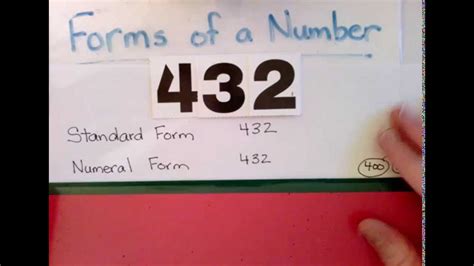 Forms of a Number
432
Standard Form 432
Numeral Form 432
400